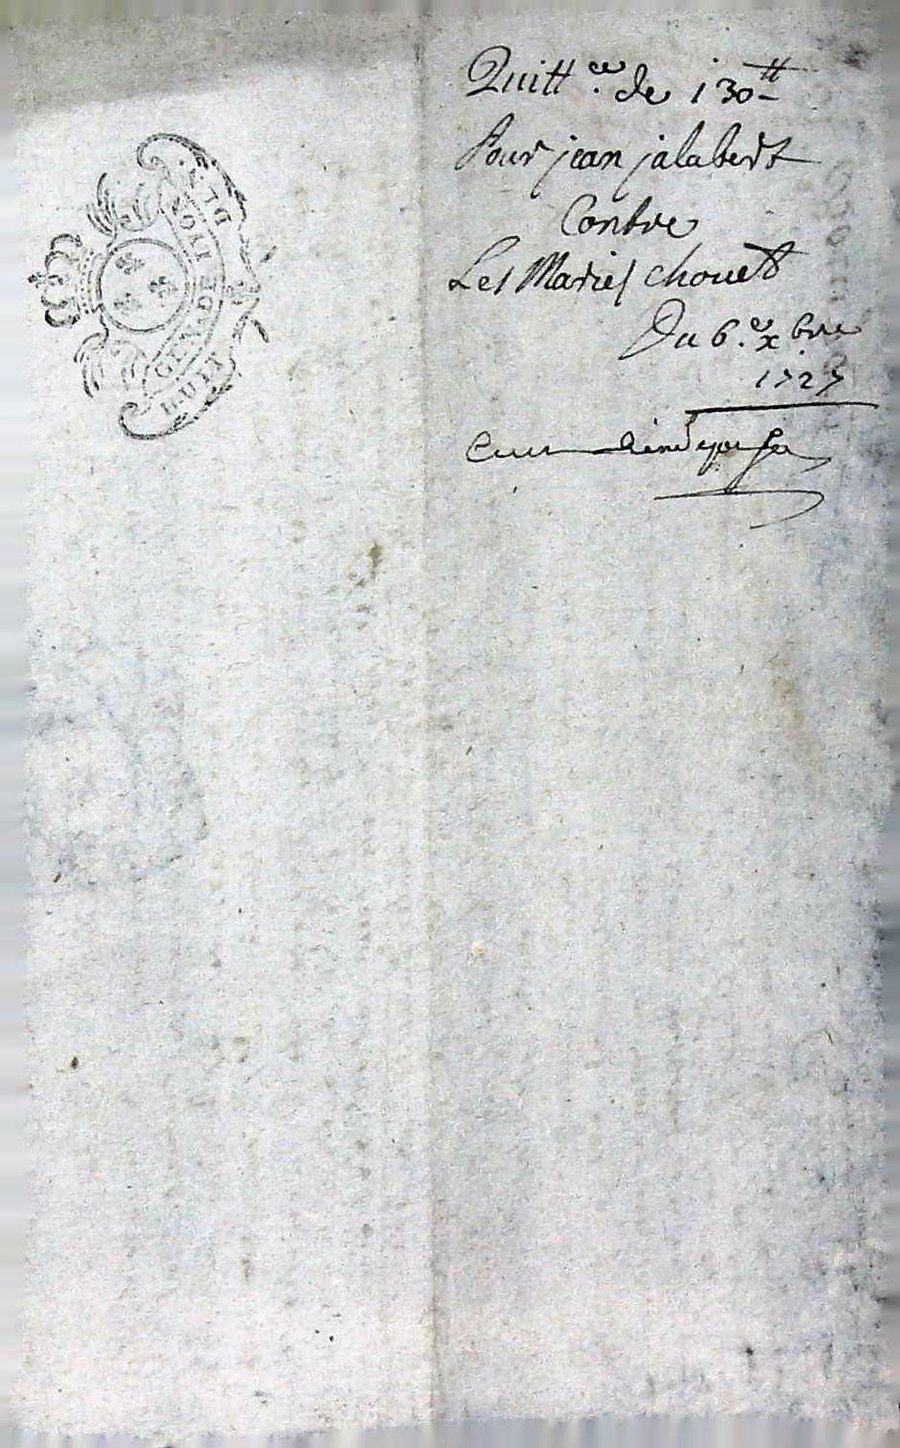 Quitt.ce de 130tt
Pour jean jalabert
Contre
Les Maries chouet
Du 6.e xbre
1727
GEN. DE
HUIT